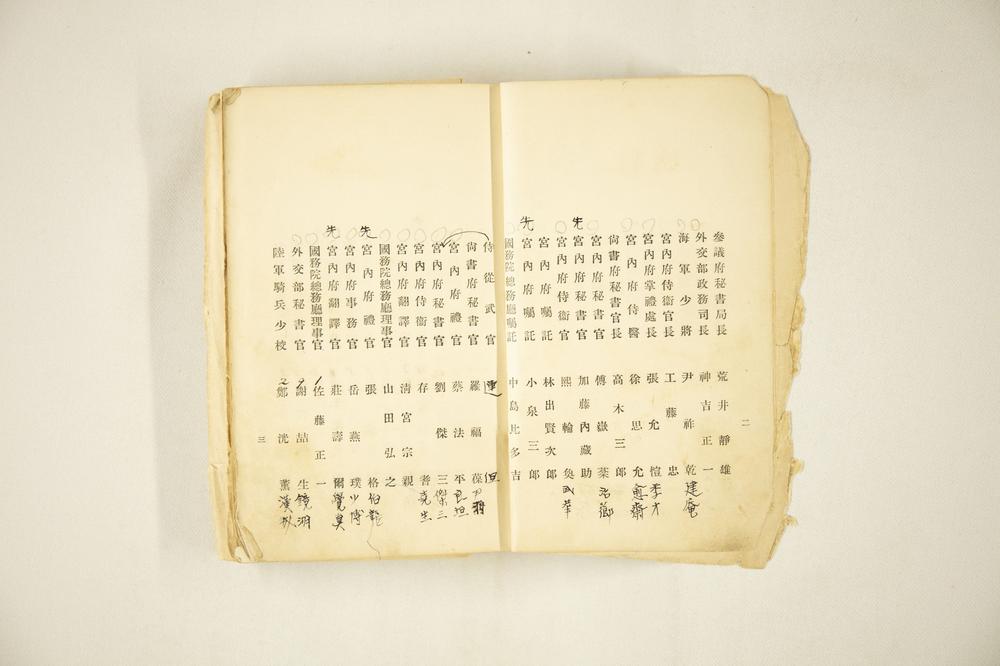 二
參議府秘書局長 荒井靜雄
外交部政務司長 神吉正一
海軍少將 尹祚乾 建庵
宮內府侍衞官長 工藤忠
宮內府掌禮處長 張允愷 季才
宮內府侍醫 徐思允 愈齋
尙書府秘書官長 高木三郎
尙書府秘書官 傅嶽棻
宮內府秘書官 加藤內藏助
宮內府侍衞官 熙輪奐
宮內府囑託 林出賢次郎
先 宮內府囑託 小泉三郎
國務院總務廳囑託 中島比多吉
侍從武官
尙書府秘書官 羅福葆
宮內府禮官 蔡法平
宮內府秘書官 劉傑三 傑三
宮內府侍衞官 存耆
宮內府翻譯官 淸宮宗親
國務院總務廳理事官 山田弘之
先 宮內府禮官 張格
宮內府事務官 岳燕璞
先 宮內府翻譯官 莊壽爾
國務院總務廳理事官 佐藤正一 1
外交部秘書官 謝喆生
陸軍騎兵少校 鄭洸薰 2
三